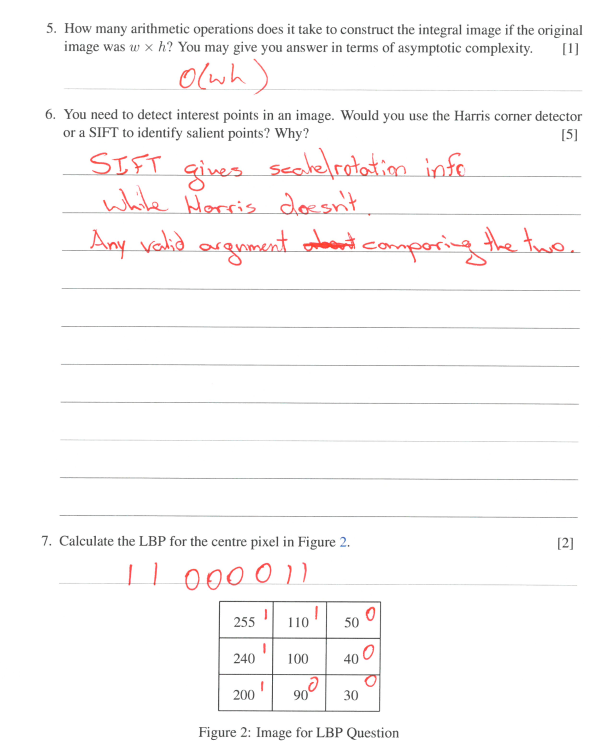 5. How many arithmetic operations does it take to construct the integral image if the original
image was w × h? You may give you answer in terms of asymptotic complexity. [1]
O(wh)
6. You need to detect interest points in an image. Would you use the Harris corner detector
or a SIFT to identify salient points? Why? [5]
SIFT gives scale/rotation info
while Harris doesn't.
Any valid argument comparing the two.
7. Calculate the LBP for the centre pixel in Figure 2. [2]
11000011
255 1 110 1 50 0
240 1 100 40 0
200 1 90 0 30 0
Figure 2: Image for LBP Question